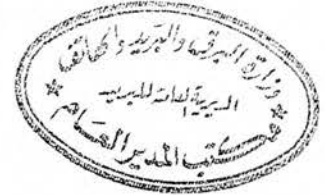 وزارة البرق والبريد والهاتف
المديرية العامة للبريد
مكتب المدير العام